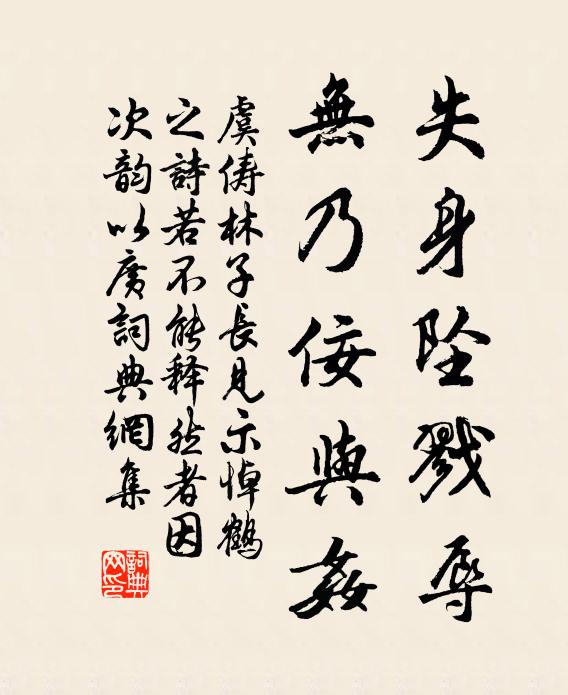 失身坠戮辱
無乃佞與姦
虞俦林子長見示悼鶴
之詩若不能释然者因
次韵以廣詞典網集
詞典网印